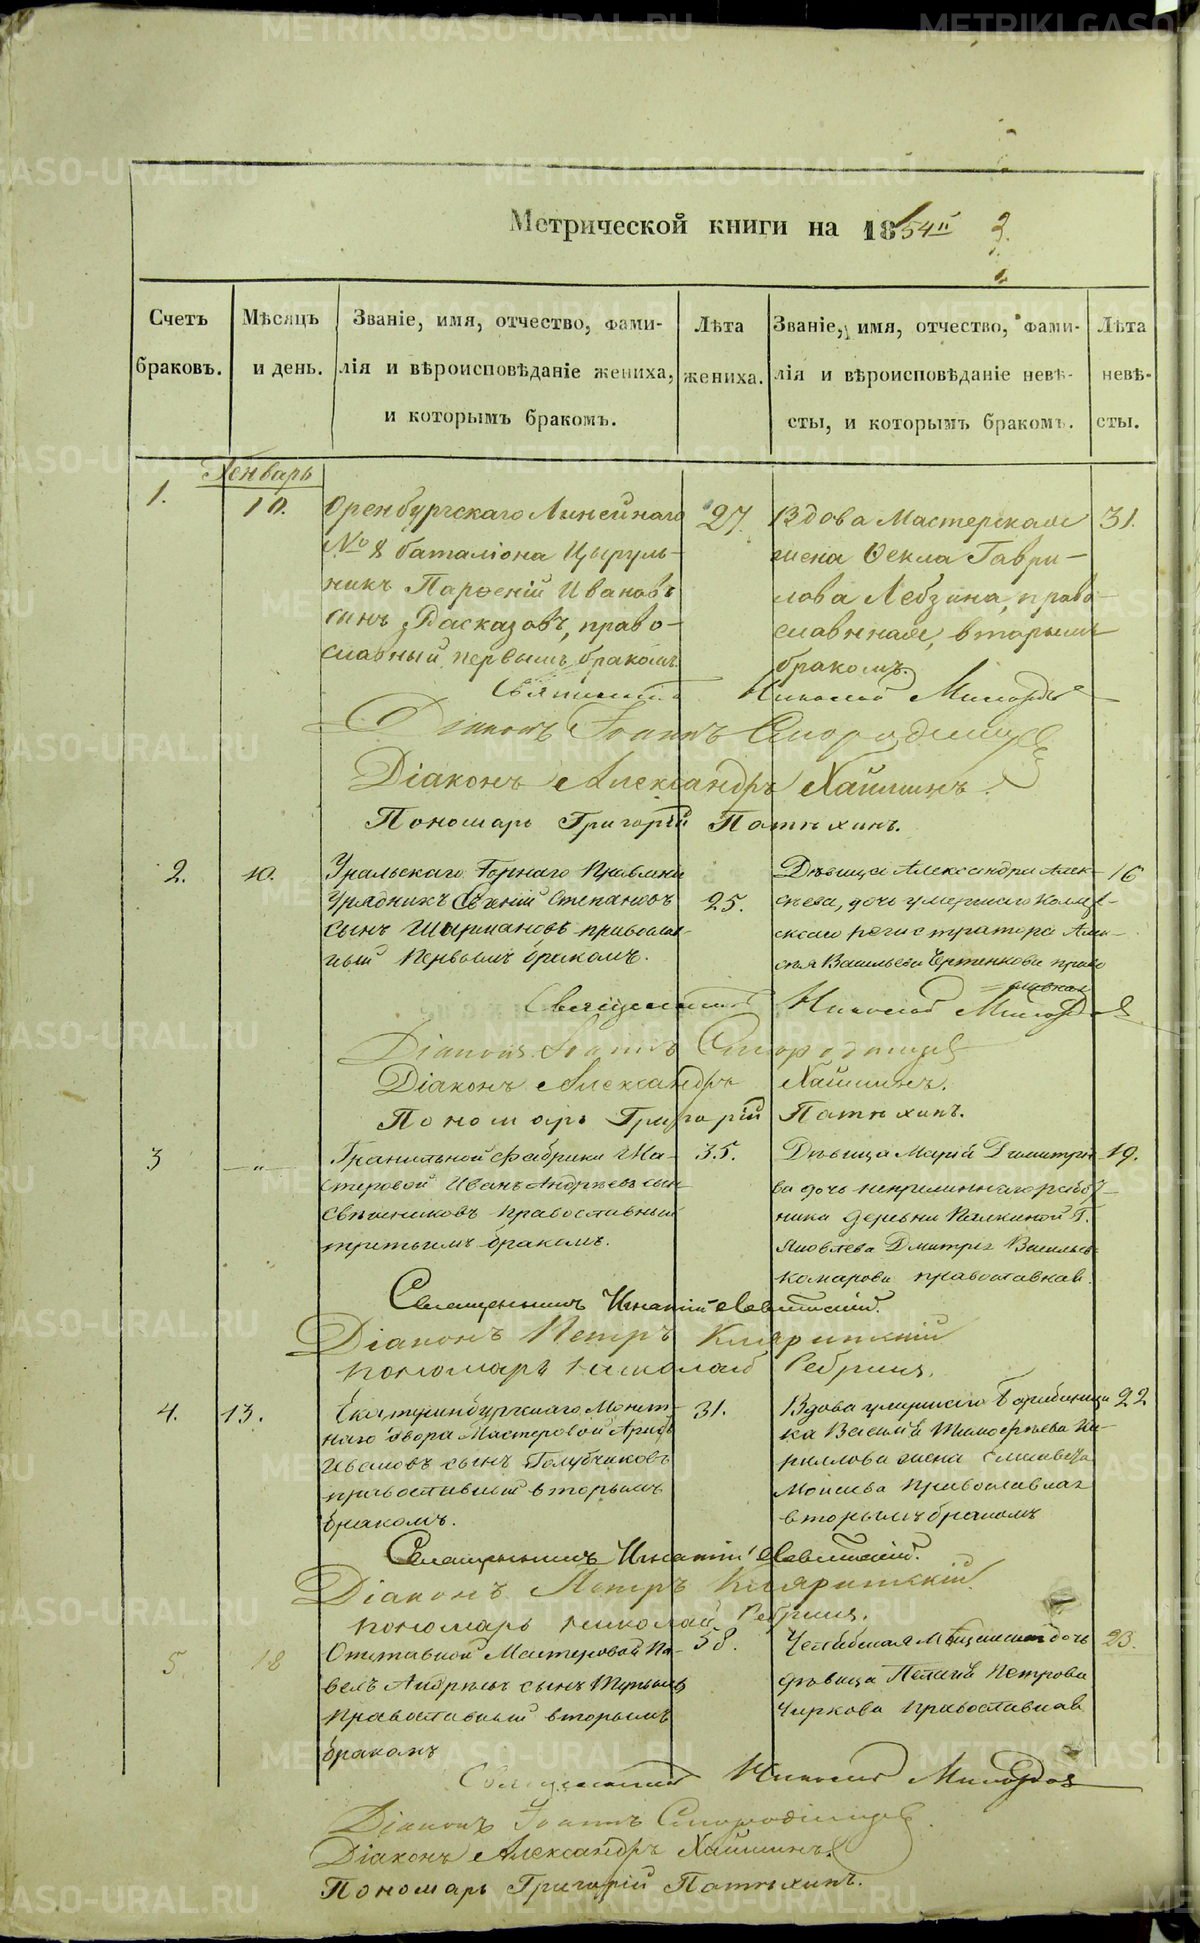 METRIKI.GASO-URAL.RU
Метрической книги на 1854й
Счетъ браковъ.
Мѣсяцъ и день.
Званіе, имя, отчество, фами-
лія и вѣроисповѣданіе жениха,
и которымъ бракомъ.
Лѣта жениха.
Званіе, имя, отчество, фами-
лія и вѣроисповѣданіе невѣ-
сты, и которымъ бракомъ.
Лѣта невѣ-
сты.
Генварь
1.
10.
Оренбургскаго Линейнаго
№ 8 баталіона Цыруль-
никъ Парѳеній Ивановъ
сынъ Расказовъ, право-
славный первымъ бракомъ
27.
Вдова Мастерская
жена Ѳекла Гаври-
лова Лебзина, право-
славная, вторымъ
бракомъ.
31.
Священникъ Николай
Діаконъ Іоаннъ Смородинцевъ
Діаконъ Александръ Хайминъ.
Пономарь Григорій
2.
10.
Уральскаго Горнаго Правленія
Урядникъ Степановъ
сынъ православ-
ный первымъ бракомъ.
25.
Дѣвица Александра Алек-
сѣева, дочь умершаго Коллеж-
скаго регистратора Алек-
сѣя Васильева право
славная
16
Священникъ Николай
Діаконъ Іоаннъ Смородинцевъ
Діаконъ Александръ Хайминъ.
Пономарь Григорій
3
— „ —
Гранильной фабрики Ма-
стеровой Иванъ Андреевъ сын
Свѣчниковъ православный
третьимъ бракомъ.
35.
Дѣвица Марія Димитріе
ва дочь непремѣннаго работ-
ника деревни Палкиной Г.
Яковлева Дмитрія Васильев
Комарова православная.
19.
Священникъ Игнатій Левитскій.
Діаконъ Петръ
пономарь Николай Ребринъ.
4.
13.
Екатеринбургскаго Монет-
наго двора Мастеровой
Ивановъ сынъ Голубчиковъ
православный вторымъ
бракомъ.
31.
Вдова умершаго
ка Василія Тимофѣева Ки-
риллова жена Елисавета
Моисева православная
вторымъ бракомъ
22
Священникъ Игнатій Левитскій.
Діаконъ Петръ
пономарь Николай Ребринъ.
5.
18
Отставной Мастеровой Па-
велъ Андреевъ сынъ
православный вторымъ
бракомъ
58.
Челябинская Мѣщанская дочь
дѣвица Пелагія Петрова
Чиркова православная
23.
Священникъ Николай
Діаконъ Іоаннъ Смородинцевъ
Діаконъ Александръ Хайминъ.
Пономарь Григорій